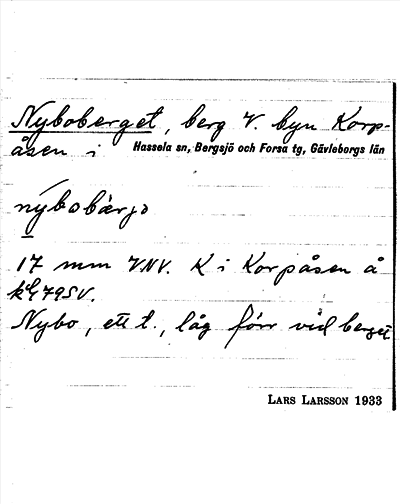 Nyboberget, berg V. byn Korp-
åsen i Hassela sn, Bergsjö och Forsa tg, Gävleborgs län
nybobärjə
17 mm VNV. K i Korpåsen å
79SV.
Nybo, ett t., låg förr vid berget
LARS LARSSON 1933